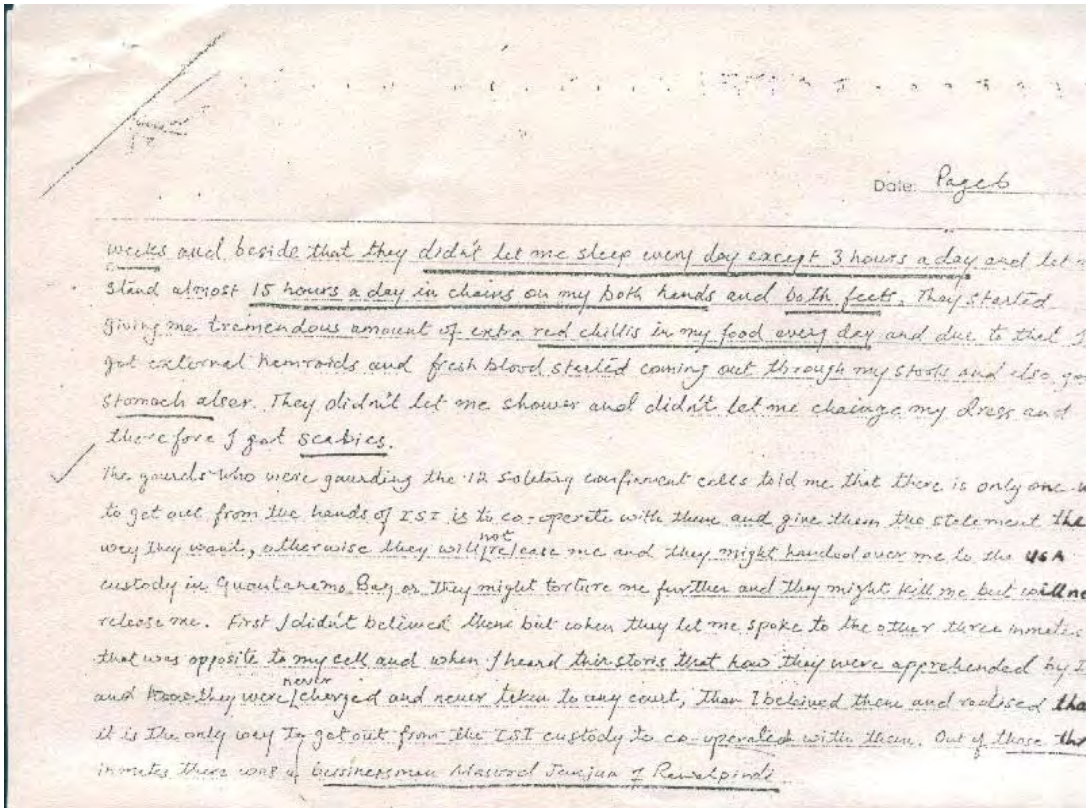 Date: Page 6
weeks and beside that they didn't let me sleep every day except 3 hours a day and let
stand almost 15 hours a day in chains on my both hands and both feets. They started
giving me tremendous amount of extra red chillis in my food every day and due to that I
got external hemroids and fresh blood started coming out through my stools and also
stomach alser. They didn't let me shower and didn't let me chainge my dress and
therefore I got scabies.
The gaurds who were gaurding the 12 soletary confinment cells told me that there is only one
to get out from the hands of ISI is to co-operate with them and give them the statement the
way they want, otherwise they will not release me and they might handed over me to the USA
custody in Guantanemo Bay or they might torture me further and they might kill me but will
release me. First I didn't beleived them but when they let me spoke to the other three inmates
that was opposite to my cell and when I heard their storis that how they were apprehended by
and they were never charged and never taken to any court, then I beleived them and realised
it is the only way to get out from the ISI custody to co-operated with them. Out of those
inmates there was a bussinersman Masood Janjua of Rawalpindi